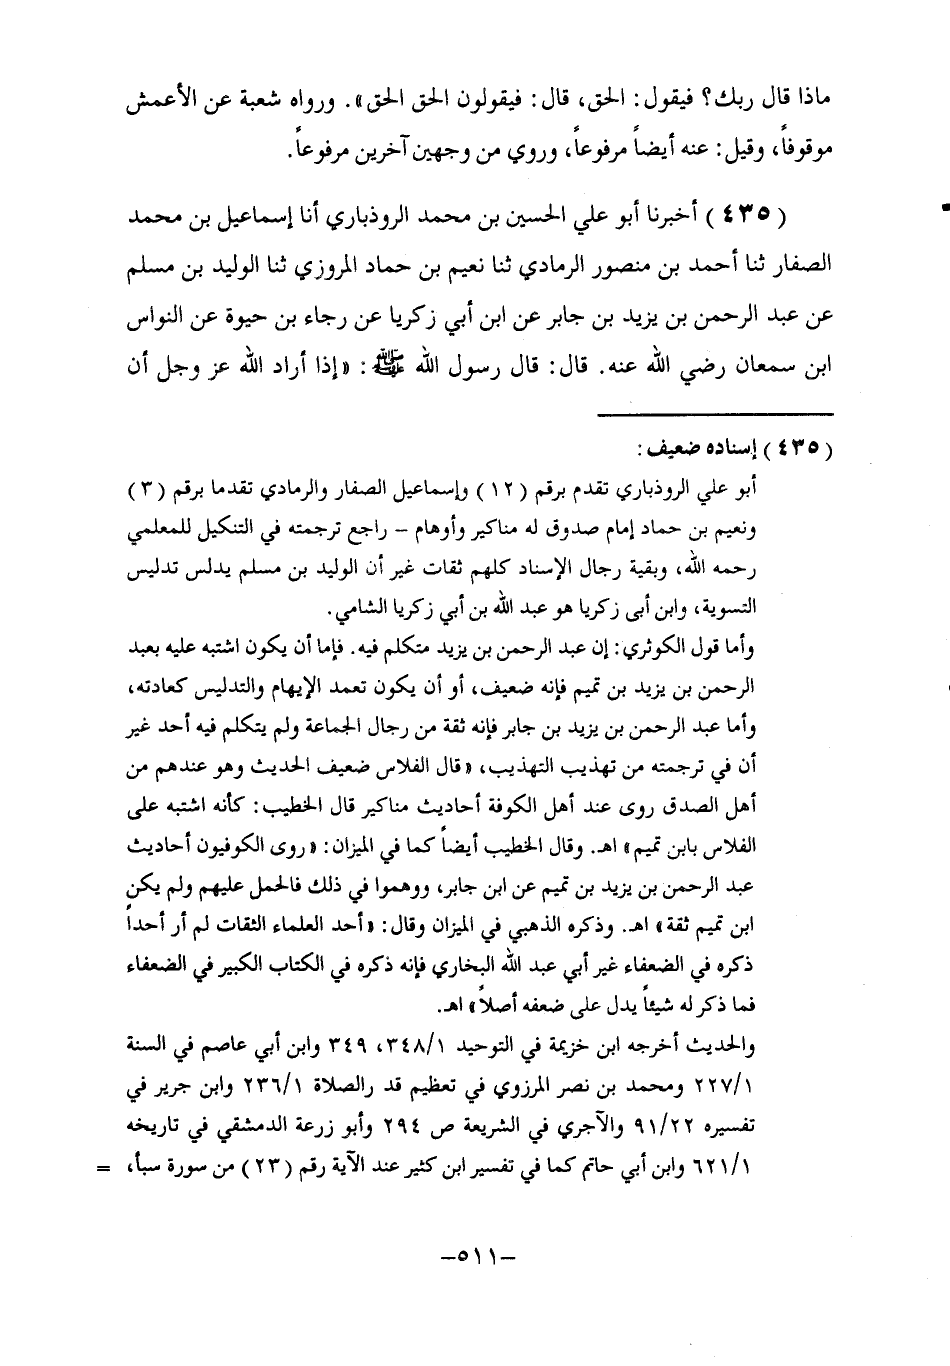 ماذا قال ربك؟ فيقول: الحق، قال: فيقولون الحق الحق». ورواه شعبة عن الأعمش
موقوفاً، وقيل: عنه أيضاً مرفوعاً، وروي من وجهين آخرين مرفوعاً.
(٤٣٥) أخبرنا أبو علي الحسين بن محمد الروذباري أنا إسماعيل بن محمد
الصفار ثنا أحمد بن منصور الرمادي ثنا نعيم بن حماد المروزي ثنا الوليد بن مسلم
عن عبد الرحمن بن يزيد بن جابر عن ابن أبي زكريا عن رجاء بن حيوة عن النواس
ابن سمعان رضي الله عنه. قال: قال رسول الله ﷺ: «إذا أراد الله عز وجل أن
(٤٣٥) إسناده ضعيف:
أبو علي الروذباري تقدم برقم (١٢) وإسماعيل الصفار والرمادي تقدما برقم (٣)
ونعيم بن حماد إمام صدوق له مناكير وأوهام – راجع ترجمته في التنكيل للمعلمي
رحمه الله، وبقية رجال الإسناد كلهم ثقات غير أن الوليد بن مسلم يدلس تدليس
التسوية، وابن أبى زكريا هو عبد الله بن أبي زكريا الشامي.
وأما قول الكوثري: إن عبد الرحمن بن يزيد متكلم فيه. فإما أن يكون اشتبه عليه بعبد
الرحمن بن يزيد بن تميم فإنه ضعيف، أو أن يكون تعمد الإيهام والتدليس كعادته،
وأما عبد الرحمن بن يزيد بن جابر فإنه ثقة من رجال الجماعة ولم يتكلم فيه أحد غير
أن في ترجمته من تهذيب التهذيب، «قال الفلاس ضعيف الحديث وهو عندهم من
أهل الصدق روى عند أهل الكوفة أحاديث مناكير قال الخطيب: كأنه اشتبه على
الفلاس بابن تميم» اهـ. وقال الخطيب أيضاً كما في الميزان: «روى الكوفيون أحاديث
عبد الرحمن بن يزيد بن تميم عن ابن جابر، ووهموا في ذلك فالحمل عليهم ولم يكن
ابن تميم ثقة» اهـ. وذكره الذهبي في الميزان وقال: «أحد العلماء الثقات لم أر أحداً
ذكره في الضعفاء غير أبي عبد الله البخاري فإنه ذكره في الكتاب الكبير في الضعفاء
فما ذكر له شيئاً يدل على ضعفه أصلاً» اهـ.
والحديث أخرجه ابن خزيمة في التوحيد ٣٤٨/١، ٣٤٩ وابن أبي عاصم في السنة
٢٢٧/١ ومحمد بن نصر المرزوي في تعظيم قد رالصلاة ٢٣٦/١ وابن جرير في
تفسيره ٩١/٢٢ والآجري في الشريعة ص ٢٩٤ وأبو زرعة الدمشقي في تاريخه
٦٢١/١ وابن أبي حاتم كما في تفسير ابن كثير عند الآية رقم (٢٣) من سورة سبأ، =
–٥١١–